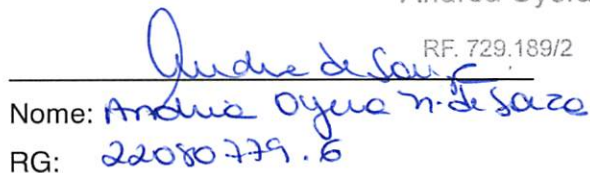 RF. 729.189/2
Nome: Andréa Oyera N. de Souza
RG: 22080779.6